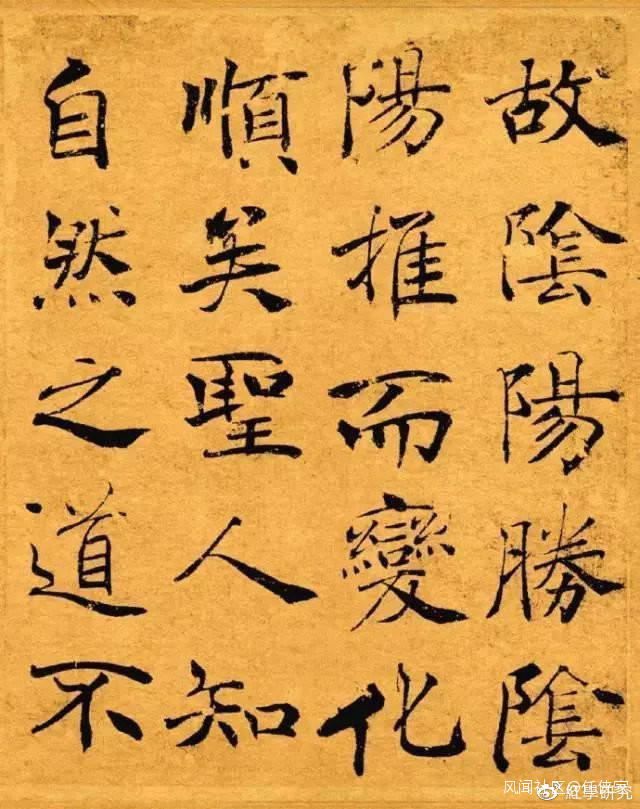 故陰陽勝陰
陽推而變化
順矣聖人知
自然之道不
风闻社区@任侠客
紅學研究